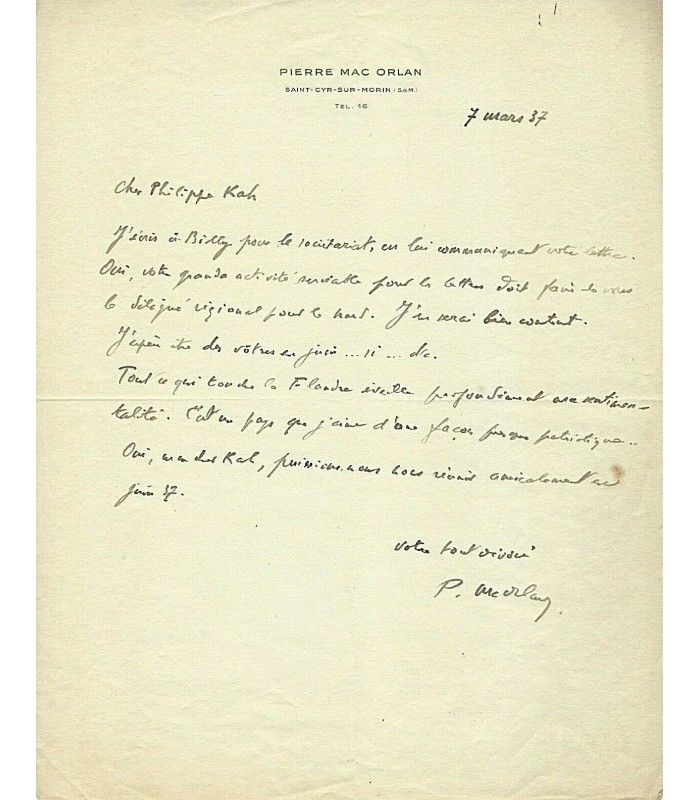 PIERRE MAC ORLAN
SAINT-CYR-SUR-MORIN (S.&M.)
TÉL. 16
7 mars 37
Cher Philippe Kah
J'écris à Billy pour le sociétariat, en lui communiquant votre lettre.
Oui, votre grande activité serviable pour les lettres doit faire de vous
le délégué régional pour le nord. J'en serai bien content.
J'espère être des vôtres en juin ... si ... etc.
Tout ce qui touche la Flandre éveille profondément ma sentimen-
talité. C'est un pays que j'aime d'une façon presque patriotique..
Oui, mon cher Kah, puissions-nous nous réunir amicalement en
juin 37.
votre tout dévoué
P. Mac Orlan.